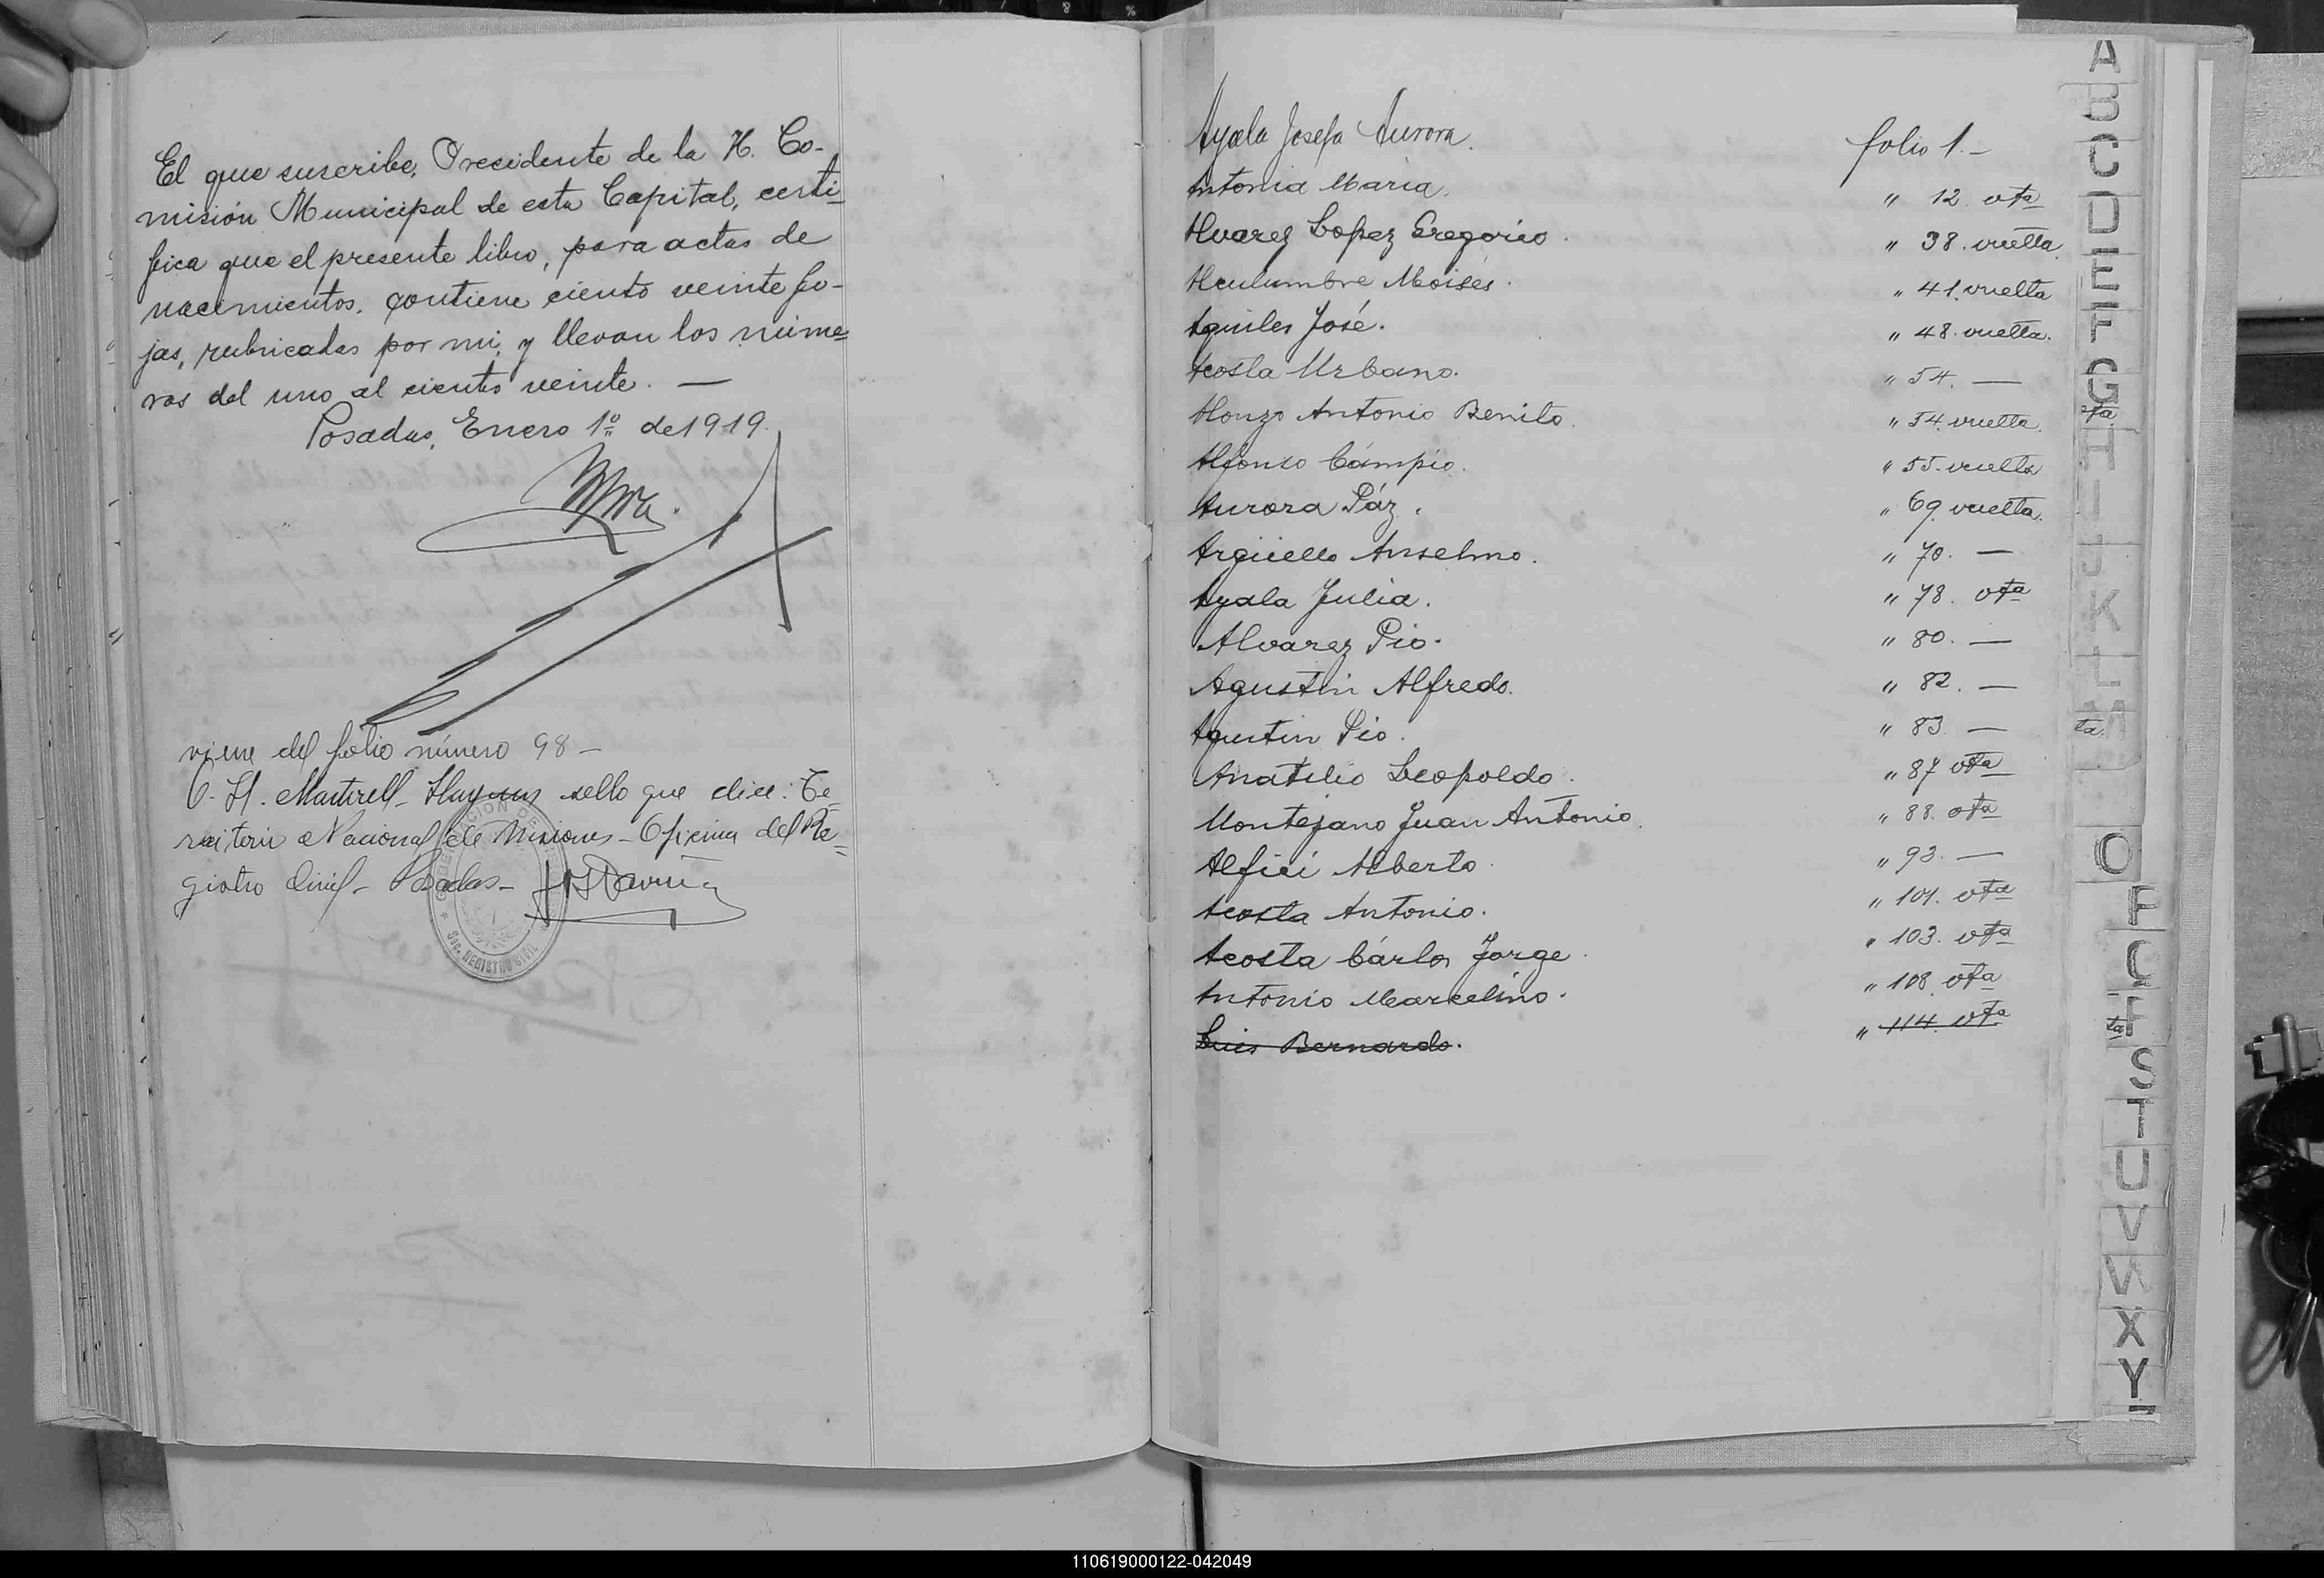 El que suscribe, Presidente de la H. Co-
misión Municipal de esta Capital, certi=
fica que el presente libro, para actas de
nacimientos, contiene ciento veinte fo-
jas, rubricadas por mi, y llevan los núme=
ros del uno al ciento veinte. —
Posadas, Enero 1º de 1919.
viene del folio número 98 —
C. H. Martirell - Hay un sello que dice: Te=
rritorio Nacional de Misiones - Oficina del Re=
gistro Civil - Posadas -
GOBERNACION DE
Sec. REGISTRO CIVIL
Ayala Josefa Aurora. folio 1. —
Antonia Maria. " 12. vta
Alvarez Lopez Gregorio. " 38. vuelta.
Aculumbre Moisés. " 41. vuelta
Aquiles José. " 48. vuelta.
Acosta Urbano. " 54. —
Alonzo Antonio Benito. " 54. vuelta.
Alfonso Cámpio. " 55. vuelta
Aurora Páz. " 69. vuelta.
Argüello Anselmo. " 70. —
Ayala Julia. " 78. vta
Alvarez Pio. " 80. —
Agustin Alfredo. " 82. —
Agustin Pio. " 83. —
Anatilio Leopoldo. " 87 vta
Montejano Juan Antonio. " 88. vta
Alfici Alberto. " 93. —
Acosta Antonio. " 101. vta
Acosta Cárlos Jorge. " 103. vta
Antonio Marcelino. " 108. vta
Luis Bernardo. " 114. vta
A
B
C
D
E
F
G
H
I
J
K
L
M
O
P
Q
S
T
U
V
W
X
Y
110619000122-042049